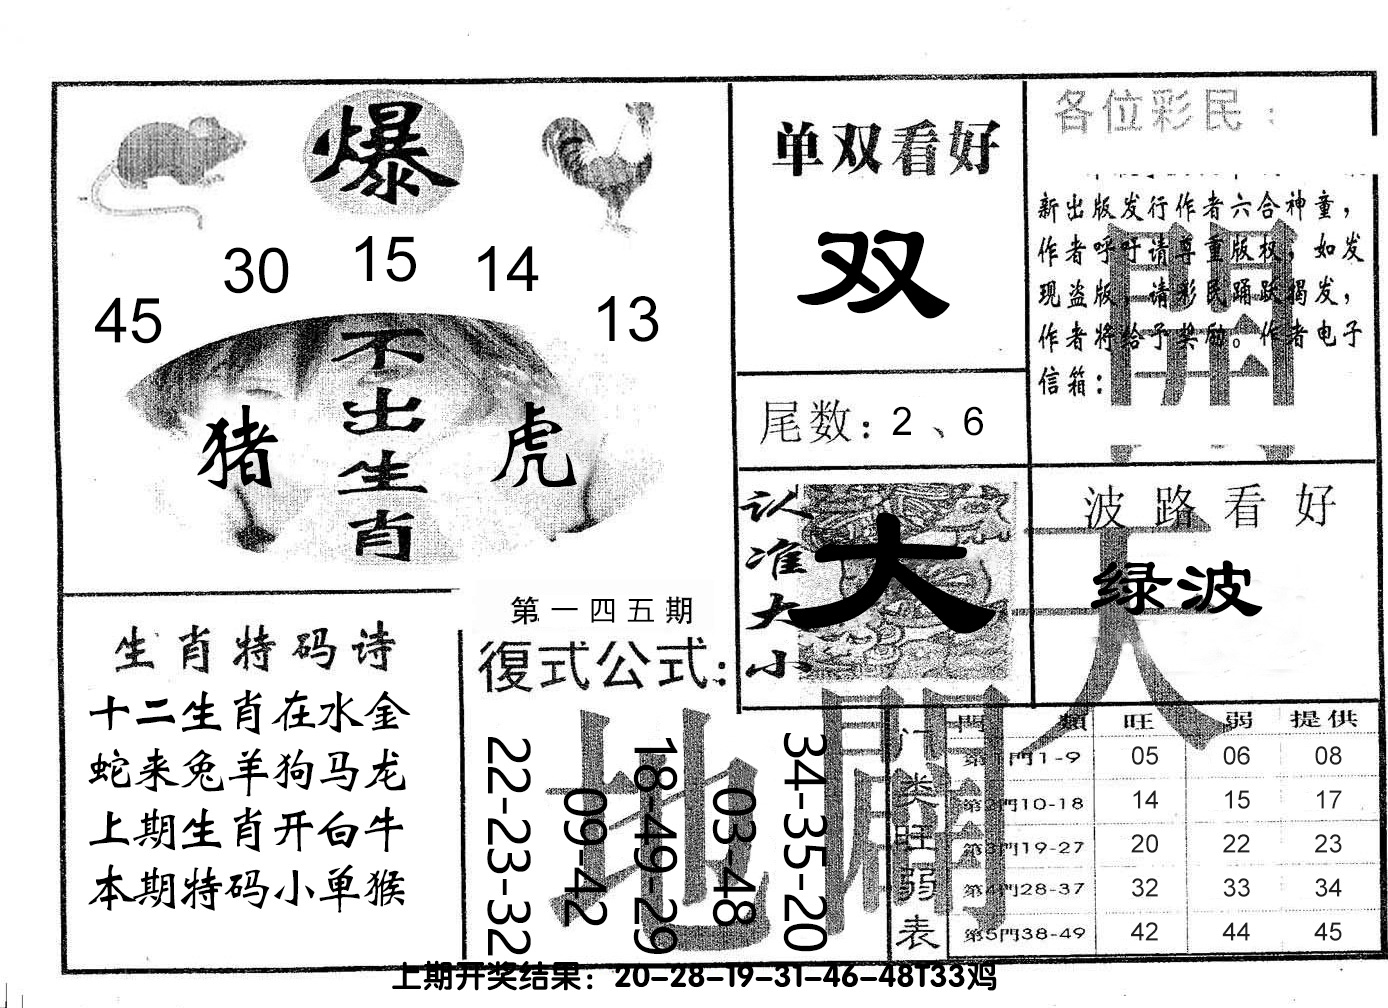 爆
45 30 15 14 13
不出生肖
猪 虎
单双看好
双
尾数：2、6
各位彩民：
新出版发行作者六合神童，
作者呼吁请尊重版权，如发
现盗版，请彩民踊跃揭发，
作者将给予奖励。作者电子
信箱：
認准大小
大
波路看好
绿波
生肖特码诗
十二生肖在水金
蛇来兔羊狗马龙
上期生肖开白牛
本期特码小单猴
第一四五期
復式公式：
22-23-32
09-42
18-49-29
03-48
34-35-20
天
地
開
门类旺弱表
門類 旺 弱 提供
第1門1-9 05 06 08
第2門10-18 14 15 17
第3門19-27 20 22 23
第4門28-37 32 33 34
第5門38-49 42 44 45
上期开奖结果：20-28-19-31-46-48T33鸡